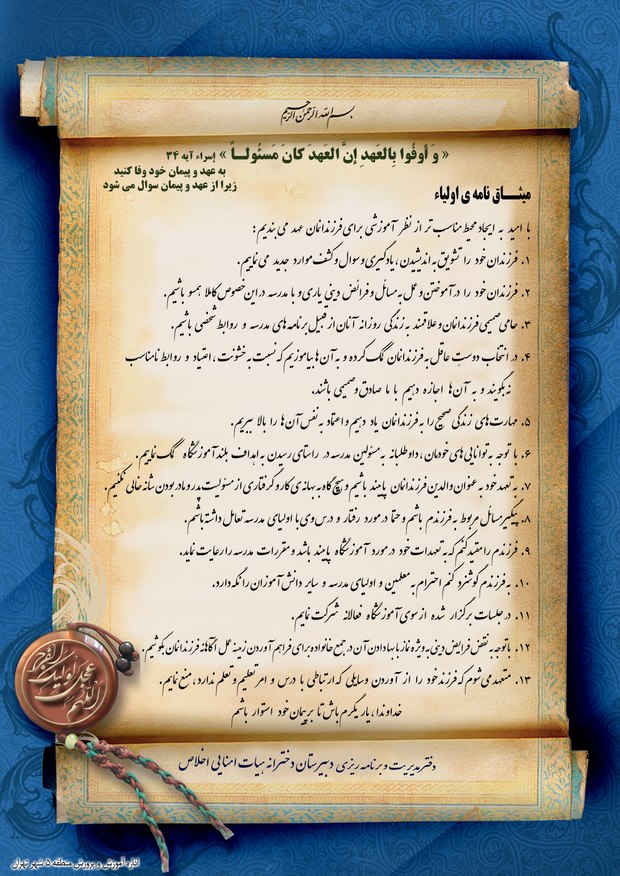 بسم الله الرحمن الرحیم
« وَ أَوفُوا بِالعَهدِ إِنَّ العَهدَ کانَ مَسئُولاً » إسراء آیه ۳۴
به عهد و پیمان خود وفا کنید
زیرا از عهد و پیمان سوال می شود
میثاق نامه ی اولیاء
با امید به ایجاد محیط مناسب تر از نظر آموزشی برای فرزندانمان عهد می بندیم:
۱. فرزندان خود را تشویق به اندیشیدن، یادگیری و سوال و کشف موارد جدید می نماییم.
۲. فرزندان خود را در آموختن و عمل به مسائل و فرائض دینی یاری و با مدرسه در این خصوص کاملا همسو باشیم.
۳. حامی صمیمی فرزندانمان و علاقمند به زندگی روزانه آنان از قبیل برنامه های مدرسه و روابط شخصی باشیم.
۴. در انتخاب دوستِ عاقل به فرزندانمان کمک کرده و به آن ها بیاموزیم که نسبت به خشونت، اعتیاد و روابط نامناسب
نه بگویند و به آن ها اجازه دهیم با ما صادق و صمیمی باشند.
۵. مهارت های زندگی صحیح را به فرزندانمان یاد دهیم و اعتماد به نفس آن ها را بالا ببریم.
۶. با توجه به توانایی های خودمان، داوطلبانه به مسئولین مدرسه در راستای رسیدن به اهداف بلند آموزشگاه کمک نماییم.
۷. به تعهد خود به عنوان والدین فرزندانمان پایبند باشیم و هیچ گاه به بهانه ی کار و گرفتاری از مسئولیت پدر و مادر بودن شانه خالی نکنیم.
۸. پیگیر مسائل مربوط به فرزندم باشم و حتما در مورد رفتار و درس وی با اولیای مدرسه تعامل داشته باشم.
۹. فرزندم را مقید کنم که به تعهدات خود در مورد آموزشگاه پایبند باشد و مقررات مدرسه را رعایت نماید.
۱۰. به فرزندم گوشزد کنم احترام به معلمین و اولیای مدرسه و سایر دانش آموزان را نگه دارد.
۱۱. در جلسات برگزار شده از سوی آموزشگاه فعالانه شرکت نمایم.
۱۲. با توجه به نقش فرایض دینی به ویژه نماز با بها دادن آن در جمع خانواده برای فراهم آوردن زمینه عمل آگاهانه فرزندانمان بکوشیم.
۱۳. متعهد می شوم که فرزند خود را از آوردن وسایلی که ارتباطی با درس و امر تعلیم و تعلم ندارد، منع نمایم.
خداوندا، یاریگرم باش تا بر پیمان خود استوار باشم
اللهم عجل لولیک الفرج
دفتر مدیریت و برنامه ریزی دبیرستان دخترانه هیات امنایی اخلاص
اداره آموزش و پرورش منطقه ۵ شهر تهران